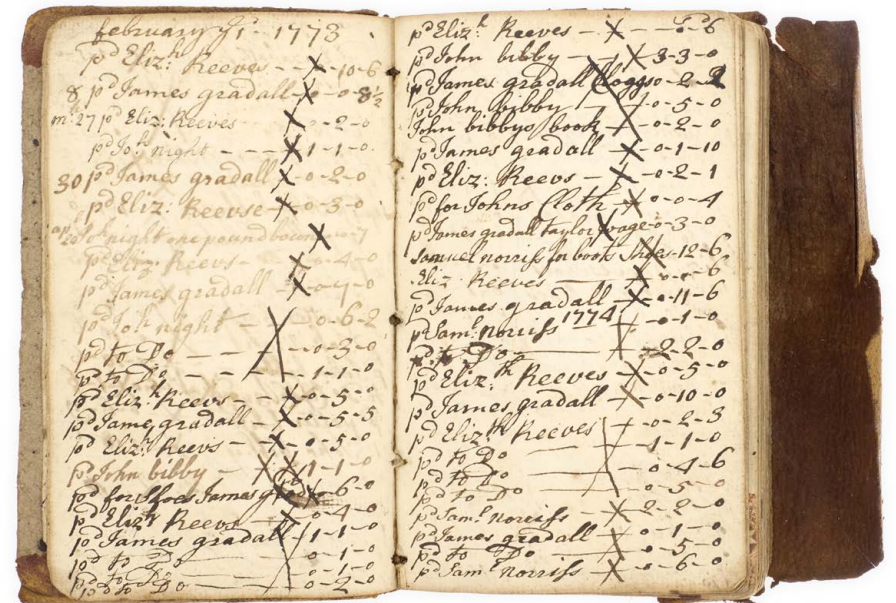 february 1773
pd Eliz: Reeves - X -10-6
8 pd James gradall X 0-0-8½
27 pd Eliz: Reeves - X -0-2-0
pd Joh night - - X 1-1-0
30 pd James gradall X -0-2-0
pd Eliz: Reevse X -0-3-0
Joh night one pound X
pd Eliz: Reevs - X -0-4-0
pd James gradall X
pd Joh night - X -0-6-2
pd to Do - - -0-3-0
pd to Do - - -1-1-0
pd Eliz:h Reevs - X -0-5-0
pd James gradall X -0-5-5
pd Eliz:h Reevs - X -0-5-0
pd John bibby - X X 1-1-0
pd for Shoes James X -6-0
pd Eliz:h Reevs X -0-4-0
pd James gradall 1-1-0
pd to Do -0-1-0
pd to Do -0-1-0
pd to Do -0-2-0
pd Eliz:h Reeves - X
pd John bibby - X 3-3-0
pd James gradall Cloggs 0-2-2
pd John bibby X -0-5-0
John bibbys book X -0-2-0
pd James gradall X -0-1-10
pd Eliz: Reevs - X -0-2-1
pd for Johns Cloth X -0-0-4
pd James gradall taylor wage X 0-3-0
Samuel norriss for book Shoes -12-6
Eliz: Reeves X
pd James gradall X -0-11-6
pd Sam:l Norriss 1774 -0-1-0
pd to Do 2-2-0
pd Eliz:th Reeves - X -0-5-0
pd James gradall X -0-10-0
pd Eliz:th Reeves -0-2-3
pd to Do -1-1-0
pd to Do -0-4-6
pd to Do -0-5-0
pd Sam:l Norriss X 2-2-0
pd James gradall X -0-1-0
pd to Do -0-5-0
pd Sam:l Norriss X -0-6-0